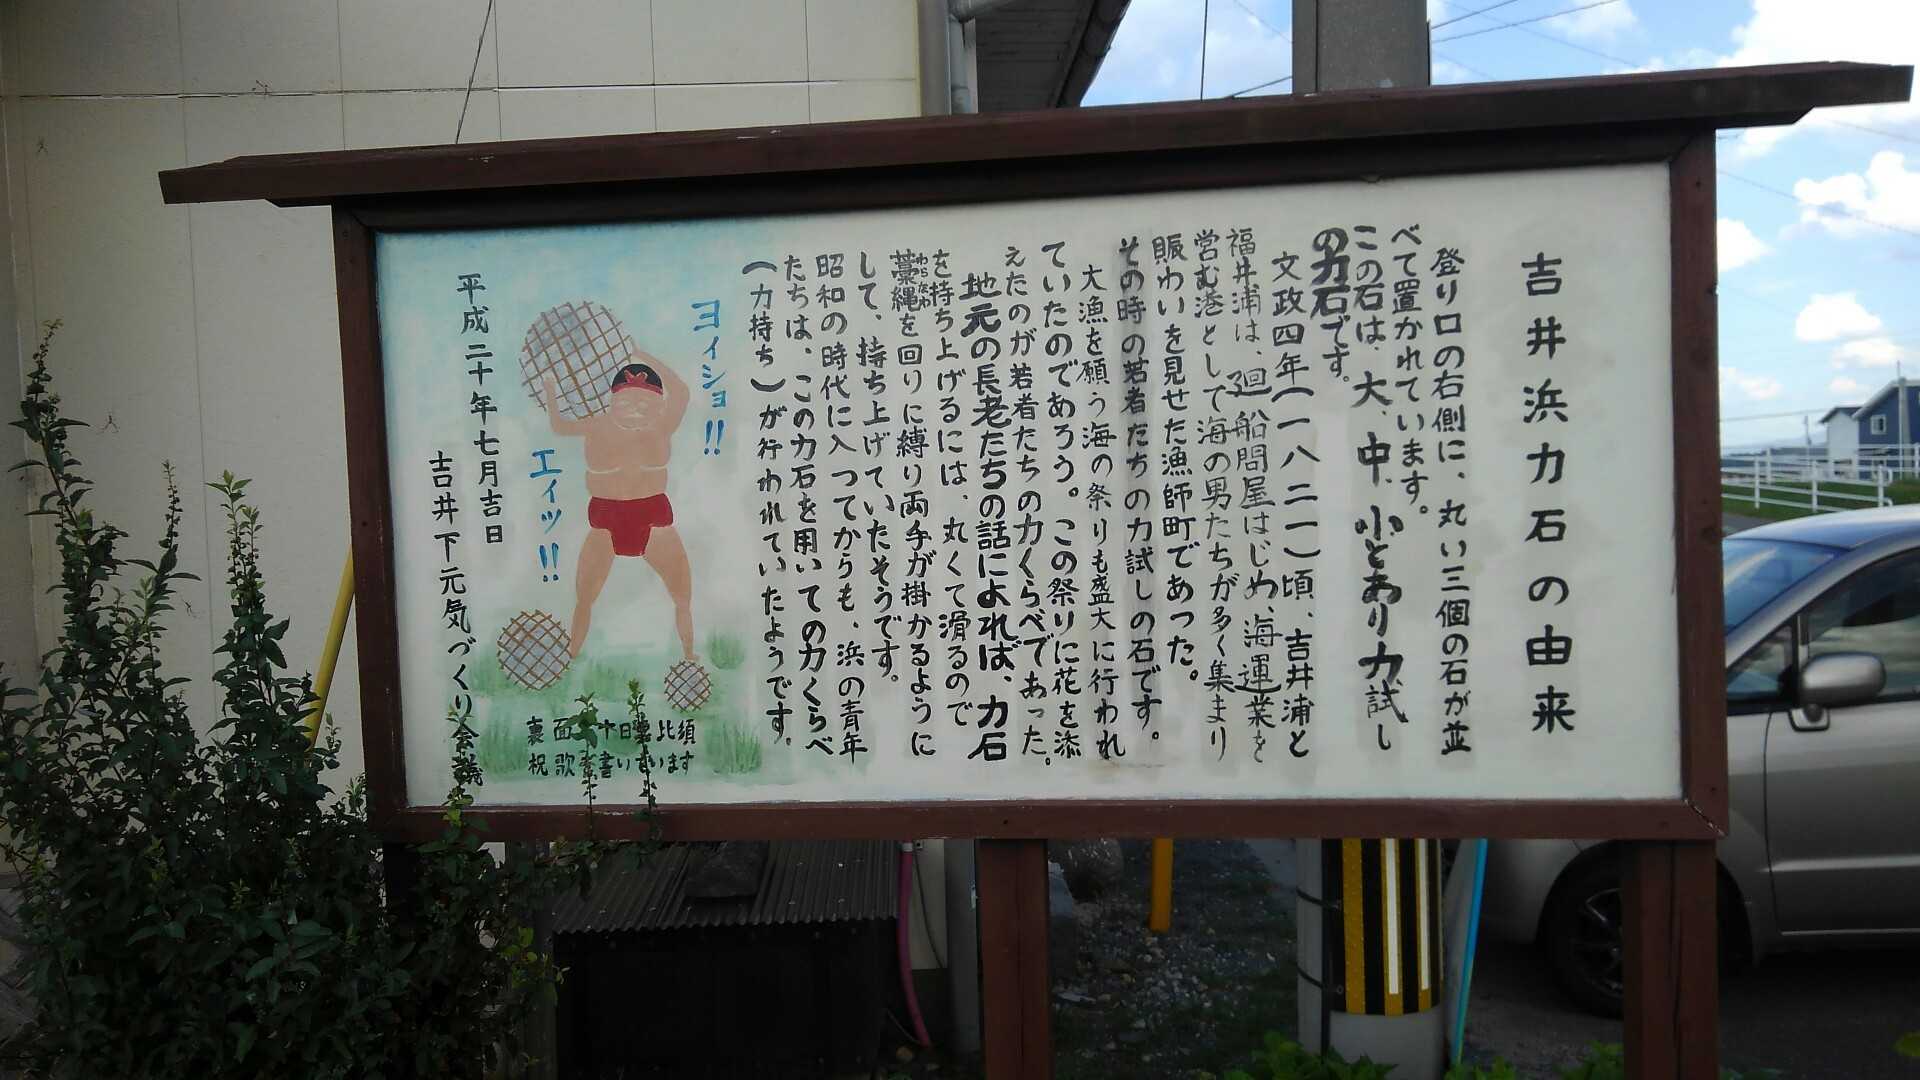 吉井浜力石の由来
登り口の右側に、丸い三個の石が並
べて置かれています。
この石は、大、中、小とあり力試し
の力石です。
文政四年(一八二一)頃、吉井浦と
福井浦は、廻船問屋はじめ、海運業を
営む港として海の男たちが多く集まり
賑わいを見せた漁師町であった。
その時の若者たちの力試しの石です。
大漁を願う海の祭りも盛大に行われ
ていたのであろう。この祭りに花を添
えたのが若者たちの力くらべであった。
地元の長老たちの話によれば、力石
を持ち上げるには、丸くて滑るので
藁縄を回りに縛り両手が掛かるように
わらなわ
して、持ち上げていたそうです。
昭和の時代に入ってからも、浜の青年
たちは、この力石を用いての力くらべ
(力持ち)が行われていたようです。
ヨイショ!!
エイッ!!
平成二十年七月吉日
吉井下元気づくり会議
裏面 十日 比須
祝歌 書い います